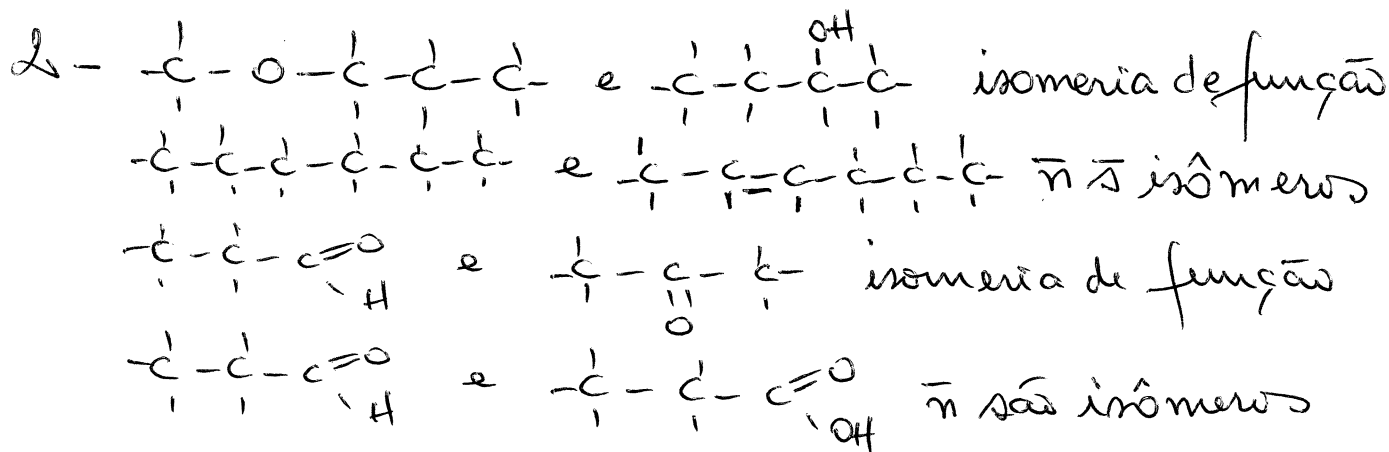 2- -C-O-C-C-C- e -C-C-C(OH)-C- isomeria de função
-C-C-C-C-C-C- e -C-C=C-C-C-C- n̄ s̄ isômeros
-C-C-C=O H e -C-C-C- O isomeria de função
-C-C-C=O H e -C-C-C=O OH n̄ são isômeros